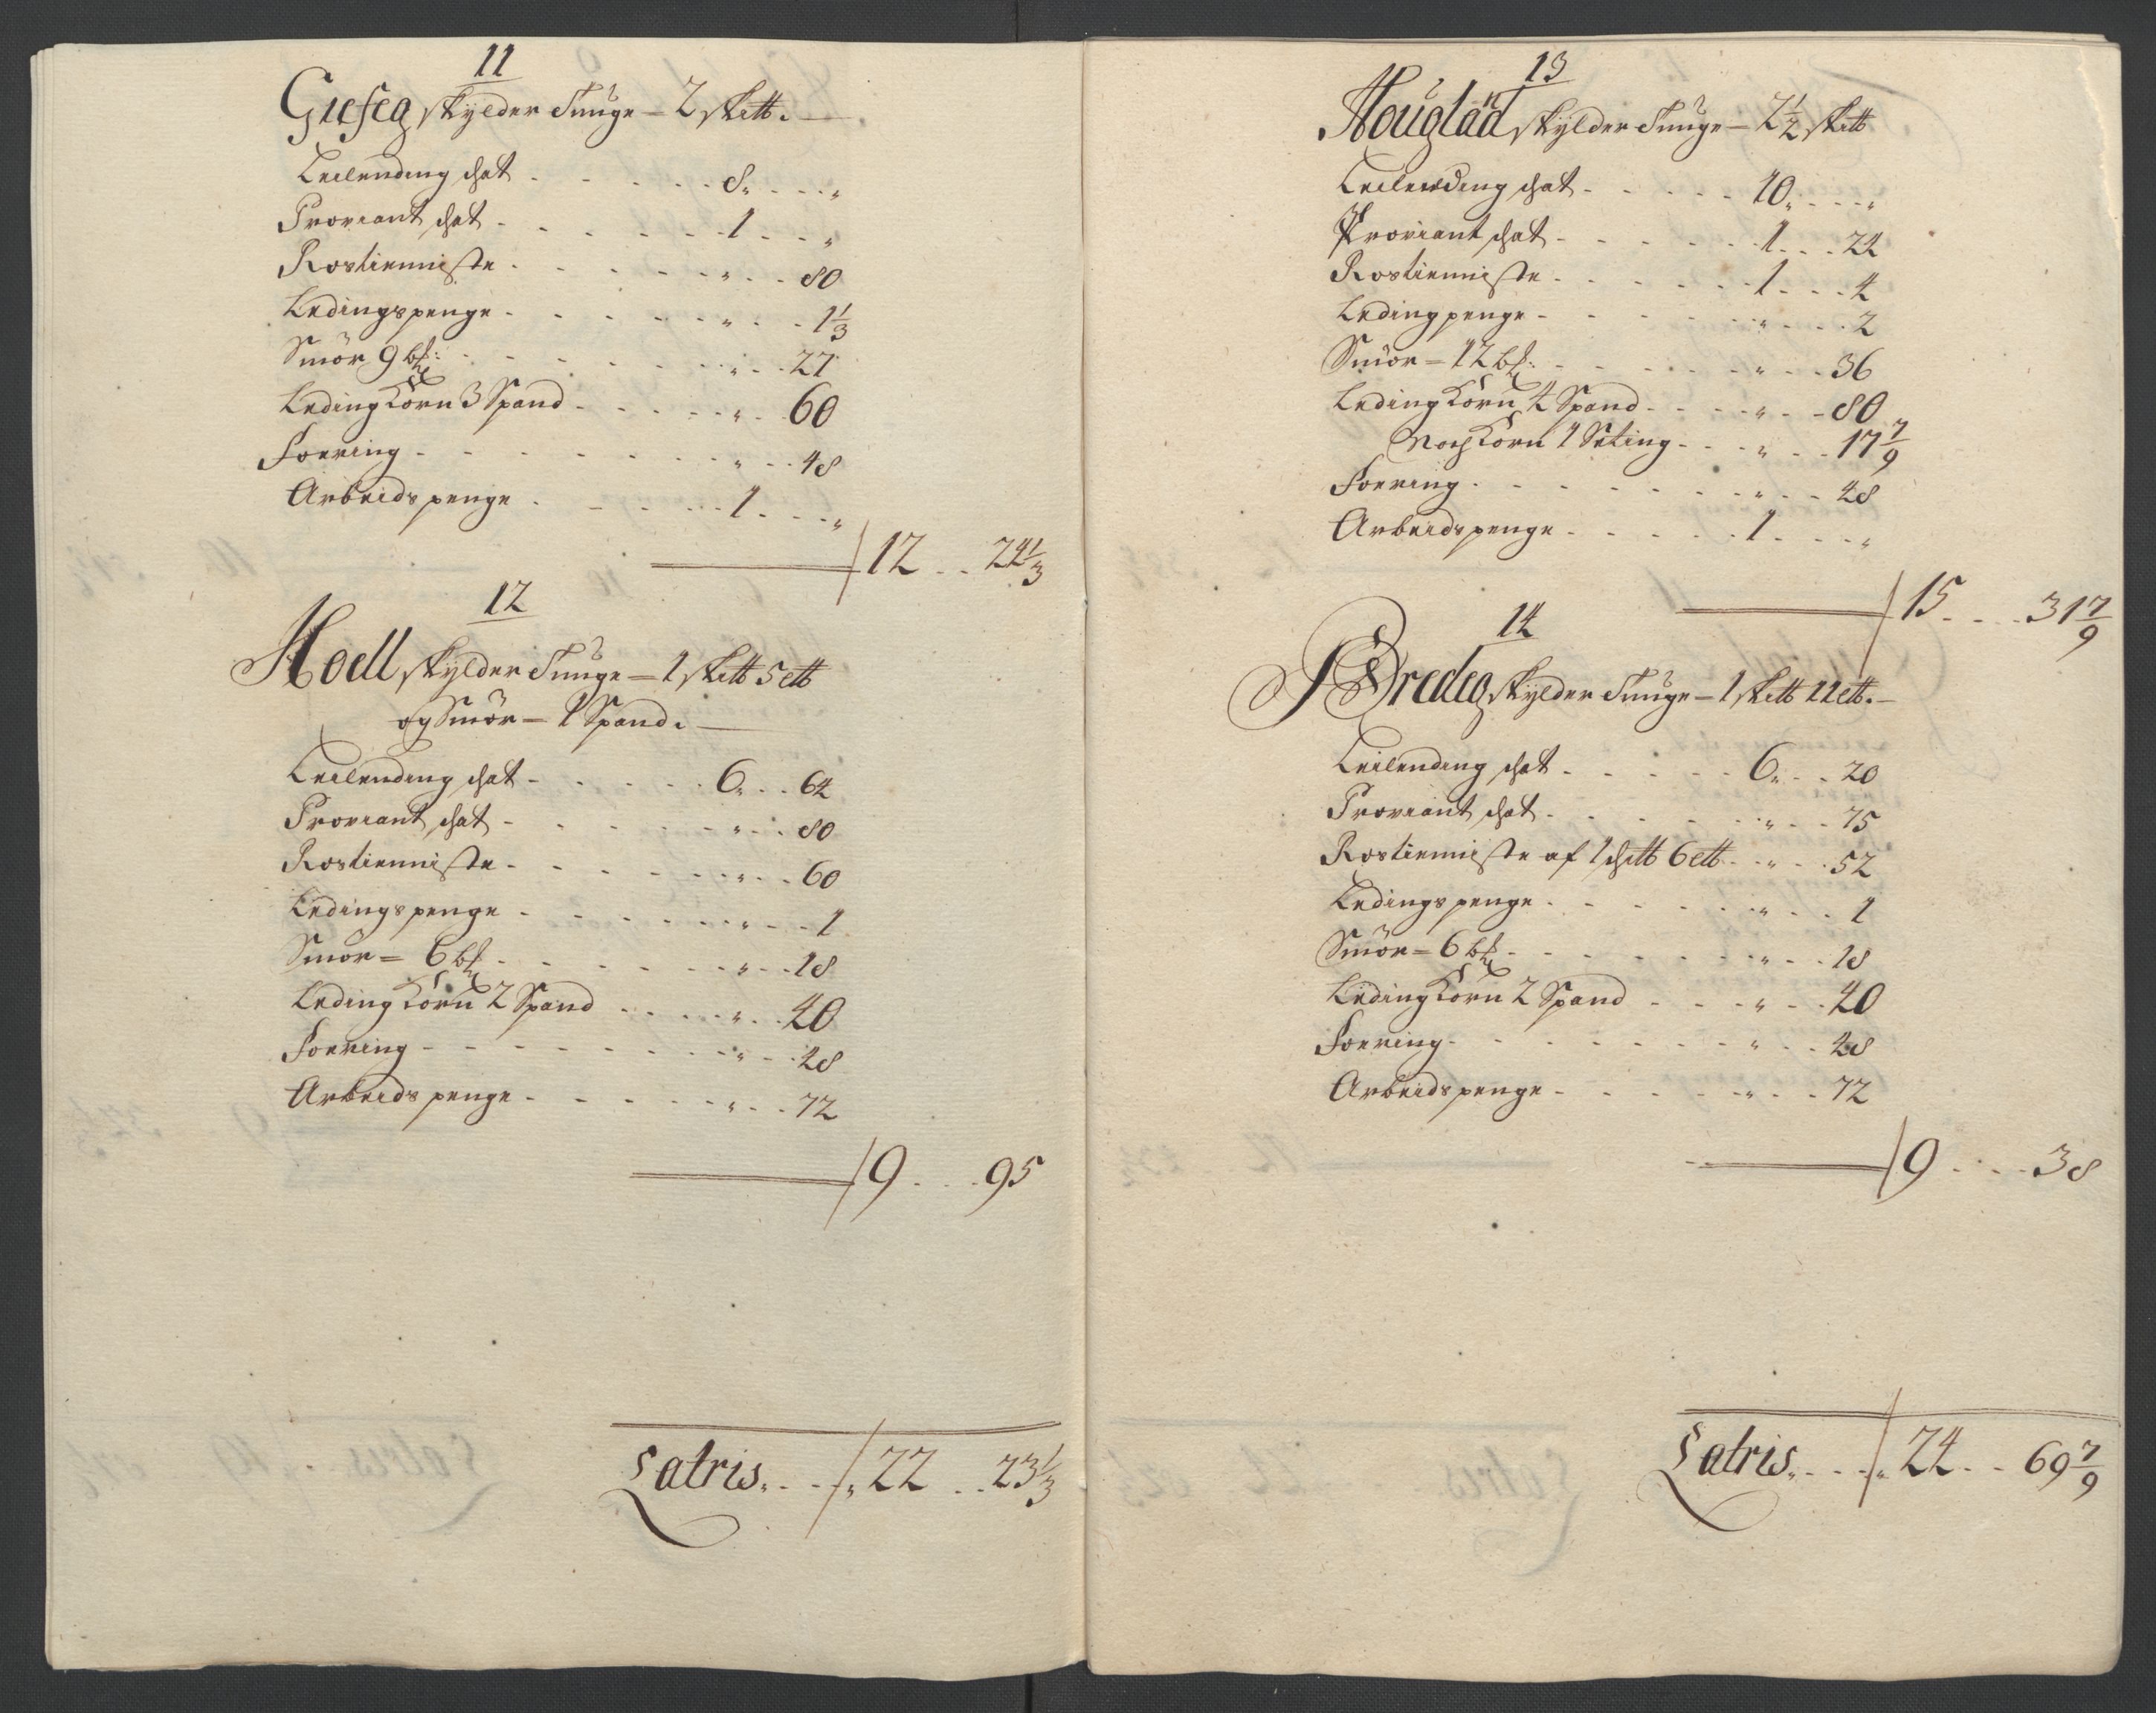 11
Giefeg skylder Tunge - 2 skett.
Leilending schat - - - 8 - - "
Proviant schat - - - 1 - - "
Rostieniste - - - " - - 80
Ledingspenge - - - " - - 1 1/3
Smör 9 bf: - - - " - - 27
Leding Korn 3 Spand - - - " - - 60
Foering - - - " - - 48
Arbeidspenge - - - 1 - - "
12 - - 24 1/3
12
Hoell skylder Tunge - 1 skett 5 ett
og Smör - 1 Spand.
Leilending schat - - - 6 - - 64
Proviant schat - - - " - - 80
Rostieniste - - - " - - 60
Ledingspenge - - - " - - 1
Smör = 6 bf - - - " - - 18
Leding Korn 2 Spand - - - " - - 40
Foering - - - " - - 48
Arbeidspenge - - - " - - 72
9 - - 95
Latris. - - 22 - - 23 1/3
13
Houglad skylder Tunge - 2 1/2 skett
Leilending schat - - - 10 - - "
Proviant schat - - - 1 - - 24
Rostieniste - - - 1 - - 4
Leding penge - - - " - - 2
Smör = 12 bf: - - - " - - 36
Leding Korn 4 Spand - - - " - - 80
Noch Korn 1 Seting - - - " - - 17 7/9
Foering - - - " - - 48
Arbeidspenge - - - 1 - - "
15 - - 31 7/9
14
Bredeg skylder Tunge - 1 skett 11 ett.
Leilending schat - - - 6 - - 20
Proviant schat - - - " - - 75
Rostieniste af 1 schett 6 ett - - " - - 52
Ledingspenge - - - " - - 1
Smör = 6 bf - - - " - - 18
Leding Korn 2 Spand - - - " - - 40
Foering - - - " - - 48
Arbeidspenge - - - " - - 72
9 - - 38
Latris. - - 24 - - 69 7/9